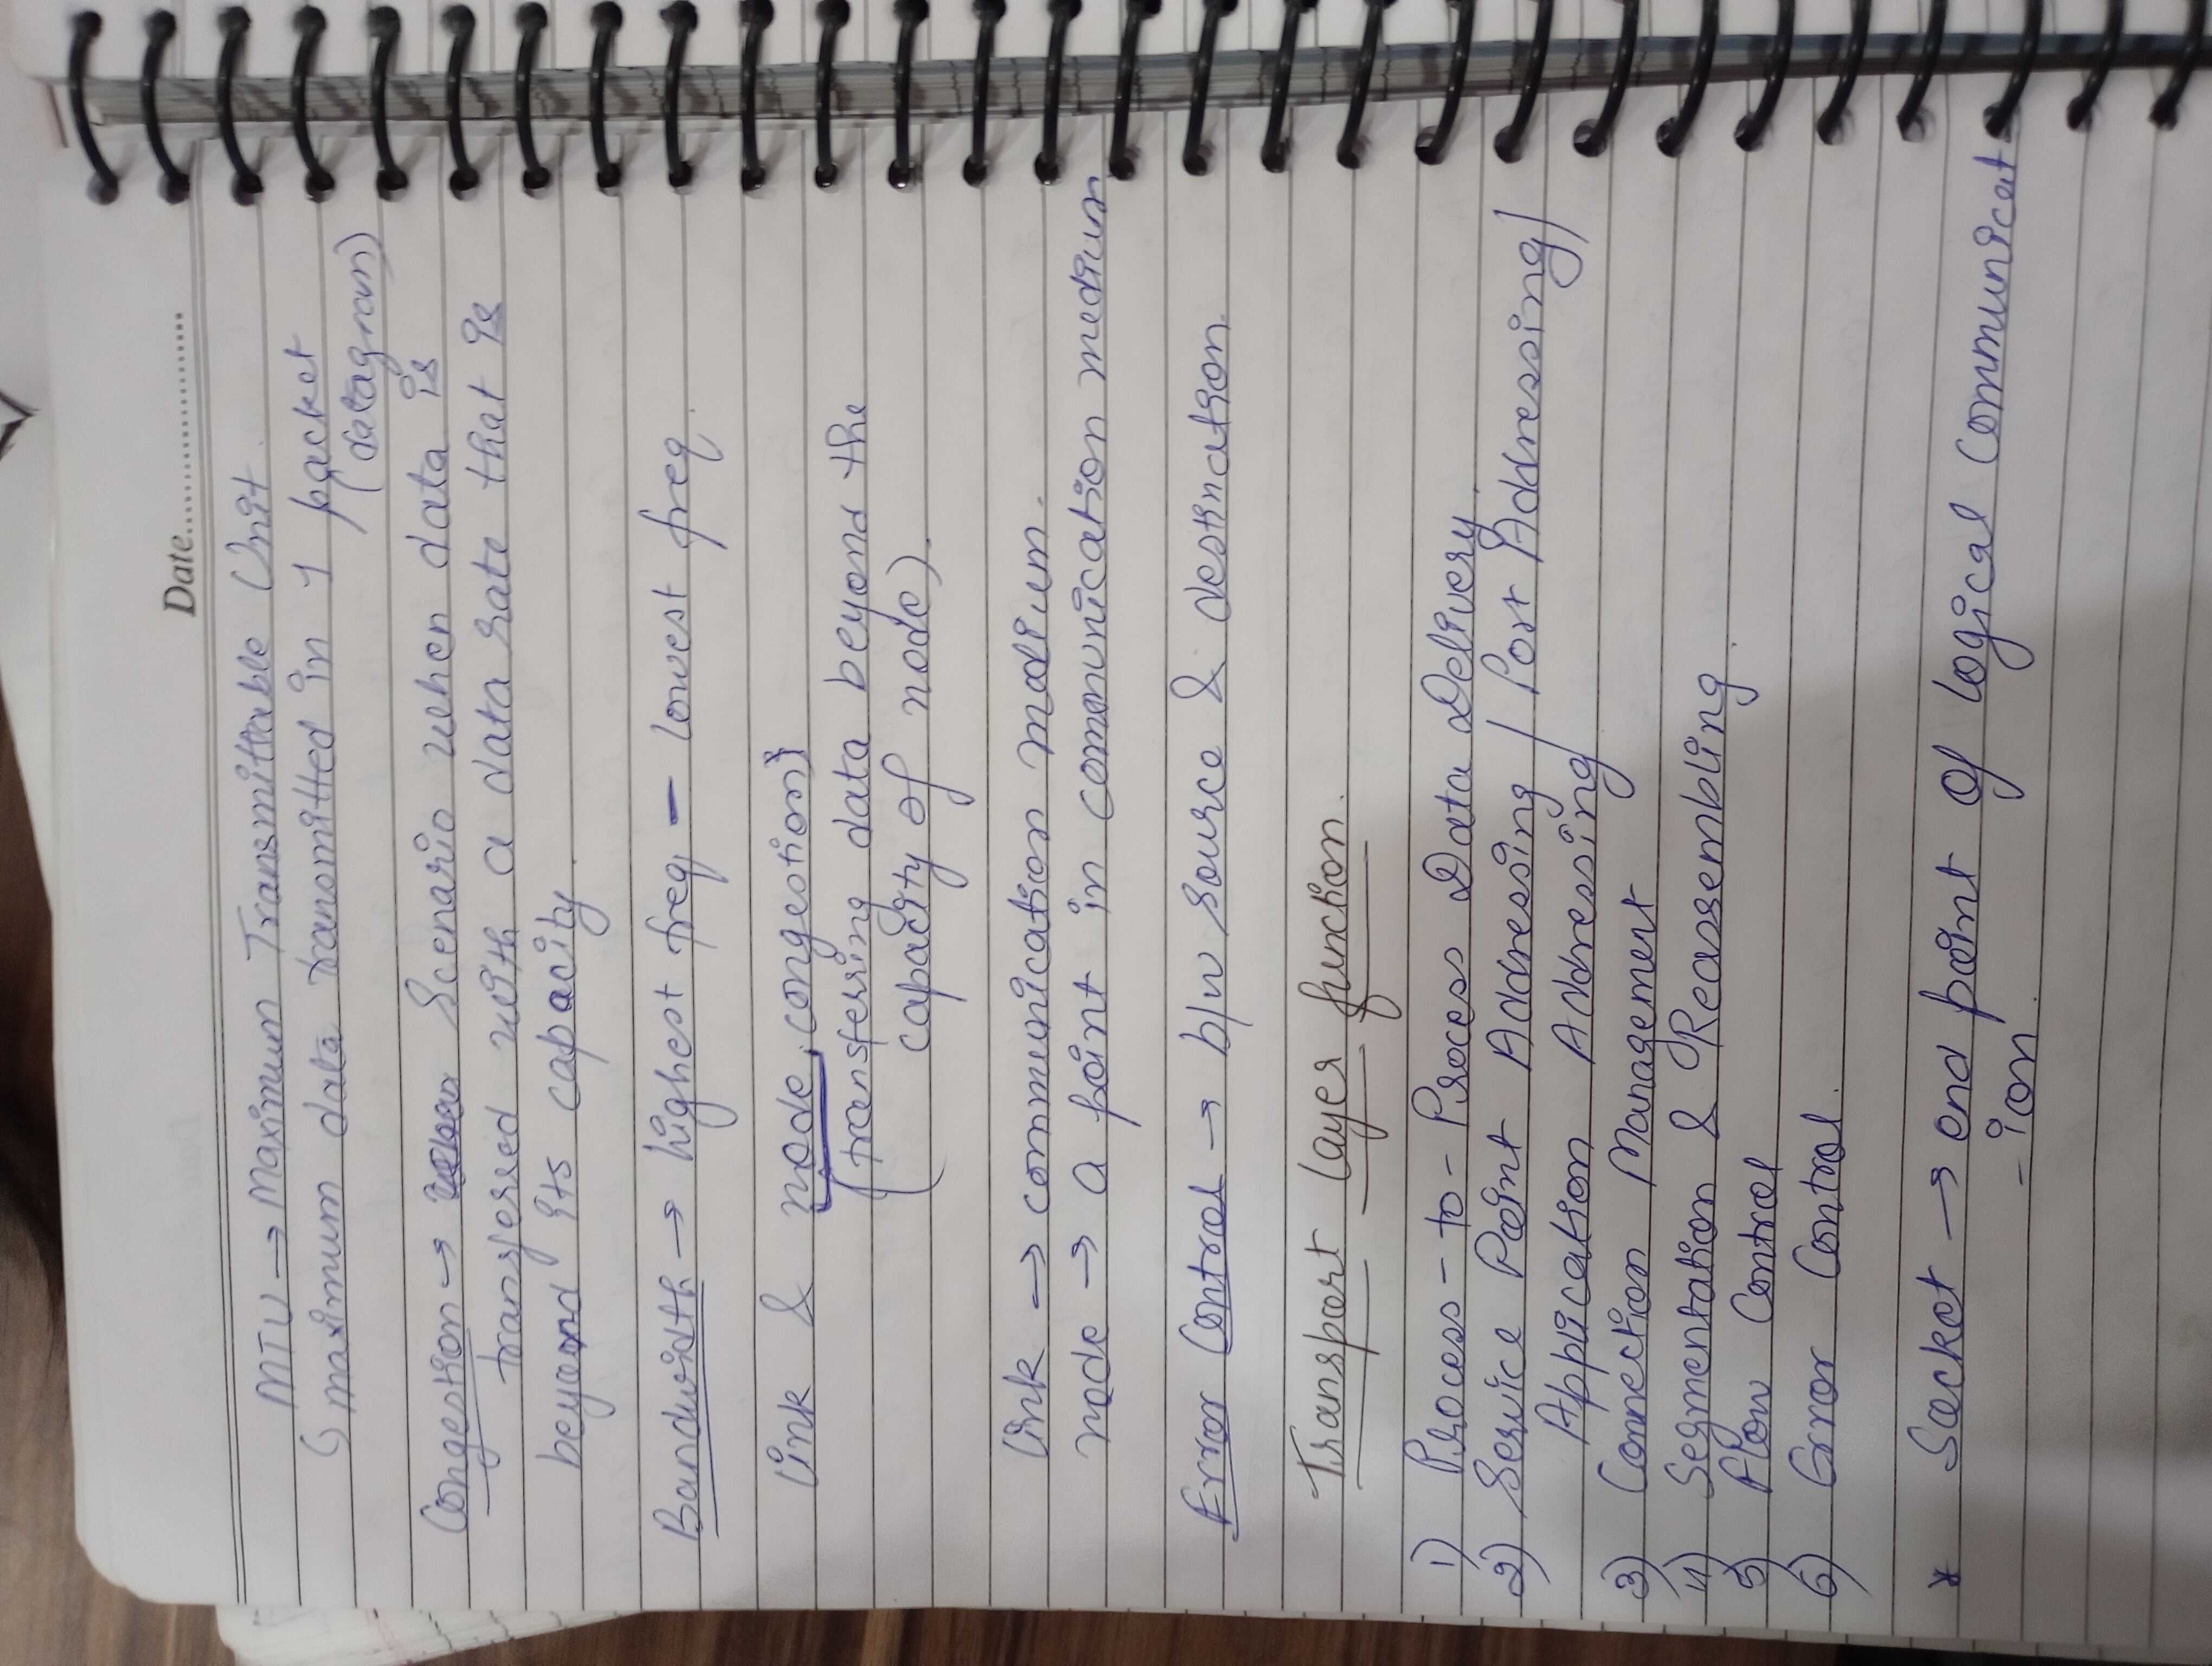 Date......................
MTU → Maximum Transmittable Unit.
maximum data transmitted in 1 packet
(datagram)
Congestion → Scenario when data is
transferred with a data rate that is
beyond its capacity.
Bandwidth → highest freq – lowest freq.
link & node congestion
(transferring data beyond the
capacity of node).
link → communication medium.
node → a point in communication medium
Error Control → b/w source & destination.
Transport layer function.
1) Process-to-Process Data Delivery.
2) Service Point Addressing / Port Addressing/
Application Addressing
3) Connection Management
4) Segmentation & Reassembling.
5) Flow Control
6) Error Control.
* Socket → end point of logical communicat-
-ion.